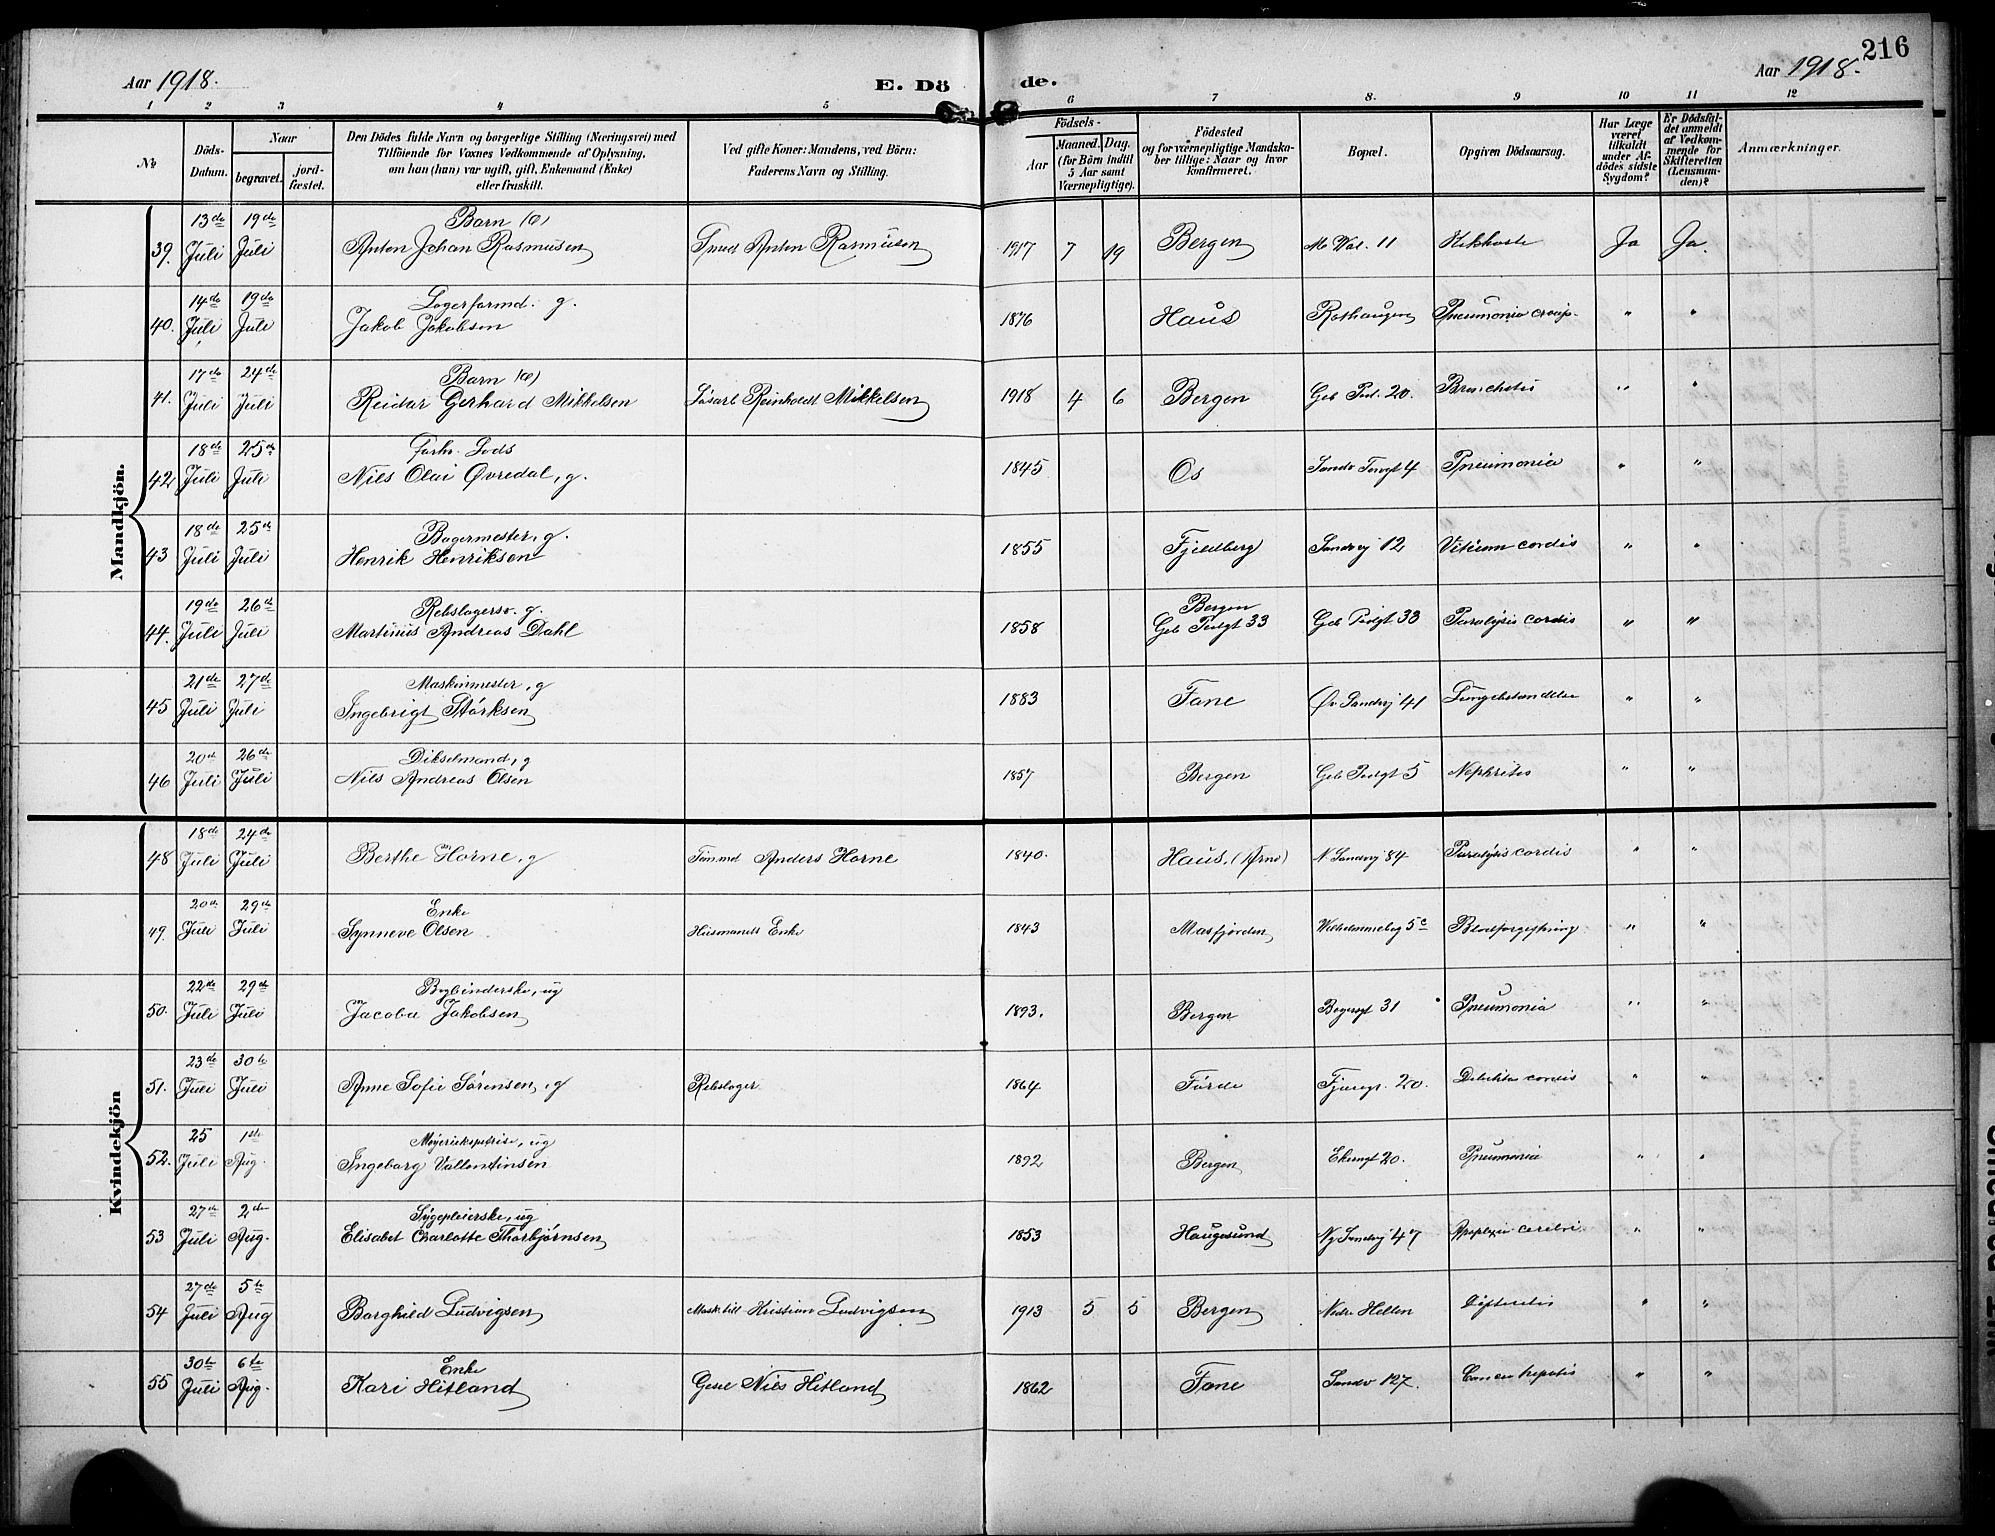 216
Aar 1918. E. Dö de. Aar 1918.
1 2 3 4 5 6 7 8. 9 10 11 12
No
Döds-Datum.
Naar
begravet.
jord-fæstet.
Den Dödes fulde Navn og borgerlige Stilling (Næringsvei) med
Tilföiende for Voxnes Vedkommende af Oplysning,
om han (hun) var ugift, gift, Enkemand (Enke)
eller fraskilt.
Ved gifte Koner: Mandens, ved Börn:
Faderens Navn og Stilling.
Födsels-
Aar
Maaned. Dag.
(for Börn indtil
5 Aar samt
Værnepligtige).
Födested
og for værnepligtige Mandska-
ber tillige: Naar og hvor
konfirmeret.
Bopæl.
Opgiven Dödsaarsag.
Har Læge
været
tilkaldt
under Af-
dödes sidste
Sygdom?
Er Dödsfal-
det anmeldt
af Vedkom-
mende for
Skifteretten
(Lensman-
den)?
Anmærkninger.
Mandkjön.
13de 19de Barn
39. Juli Juli Anton Johan Rasmussen Anton Rasmussen 1917 7 19 Bergen 11 Kikhoste Ja Ja.
14de 19de Lagerformd. g.
40. Juli Juli Jakob Jakobsen 1876 Haus Rothaugen Pneumonia croup. " "
17de 24de Barn
41. Juli Juli Reidar Gerhard Mikkelsen Reinholdt Mikkelsen 1918 4 6 Bergen Geb Pod. 20. Bronchitis " "
18de 25de Forhv. Lods
42 Juli Juli Nils Olai Øvredal, g. 1845 Os Sandv Torvgt 4 Pneumonia " "
18de 25de Bagermester, g.
43 Juli Juli Henrik Henriksen 1855 Fjeldberg Sandvj 12 Vitium cordis " "
19de 26de Rebslagersv. g. Bergen
44. Juli Juli Martinus Andreas Dahl 1858 Geb Pedgt 33 Geb Pedgt 33 Paralysis cordis " "
21de 27de Maskinmester, g
45 Juli Juli Ingebrigt Størksen 1883 Fane Øv Sandvj 41 " "
20de 26de Dikselmand, g
46 Juli Juli Nils Andreas Olsen 1857 Bergen Geb Pedgt 5 Nephritis " "
Kvindekjön
18de 24de
48 Juli Juli Berthe Horne, g Tømmd Anders Horne 1840. Haus. (Arne) N Sandvj 84 Paralysis cordis " "
20de 29de Enke
49. Juli Juli Synneve Olsen Husmands Enke 1843 Masfjorden 5c Blodforgiftning " "
22de 29de Bogbinderske, ug
50. Juli Juli Jacoba Jakobsen 1893. Bergen 31 Pneumonia " "
23de 30te
51. Juli Juli Anne Sofie Sørensen, g Rebslager 1864 Førde 20. cordis " "
25 1ste Meyeriekspetrise, ug
52. Juli Aug. Ingeborg Vallentinsen 1892 Bergen Ekrengt 20. Pneumonia " "
27de 2den Sygepleierske, ug
53 Juli Aug. Elisabet Charlotte Thorbjørnsen 1853 Haugesund Ny Sandvj 47 Apoplexia cerebri " "
27de 5te
54 Juli Aug Borghild Ludvigsen Kristian Ludvigsen 1913 5 5 Bergen Nedre Hellen Difteritis " "
30te 6te Enke
55 Juli Aug. Kari Hitland Nils Hitland 1862 Fane Sandv 127. Cancer hepatis " "